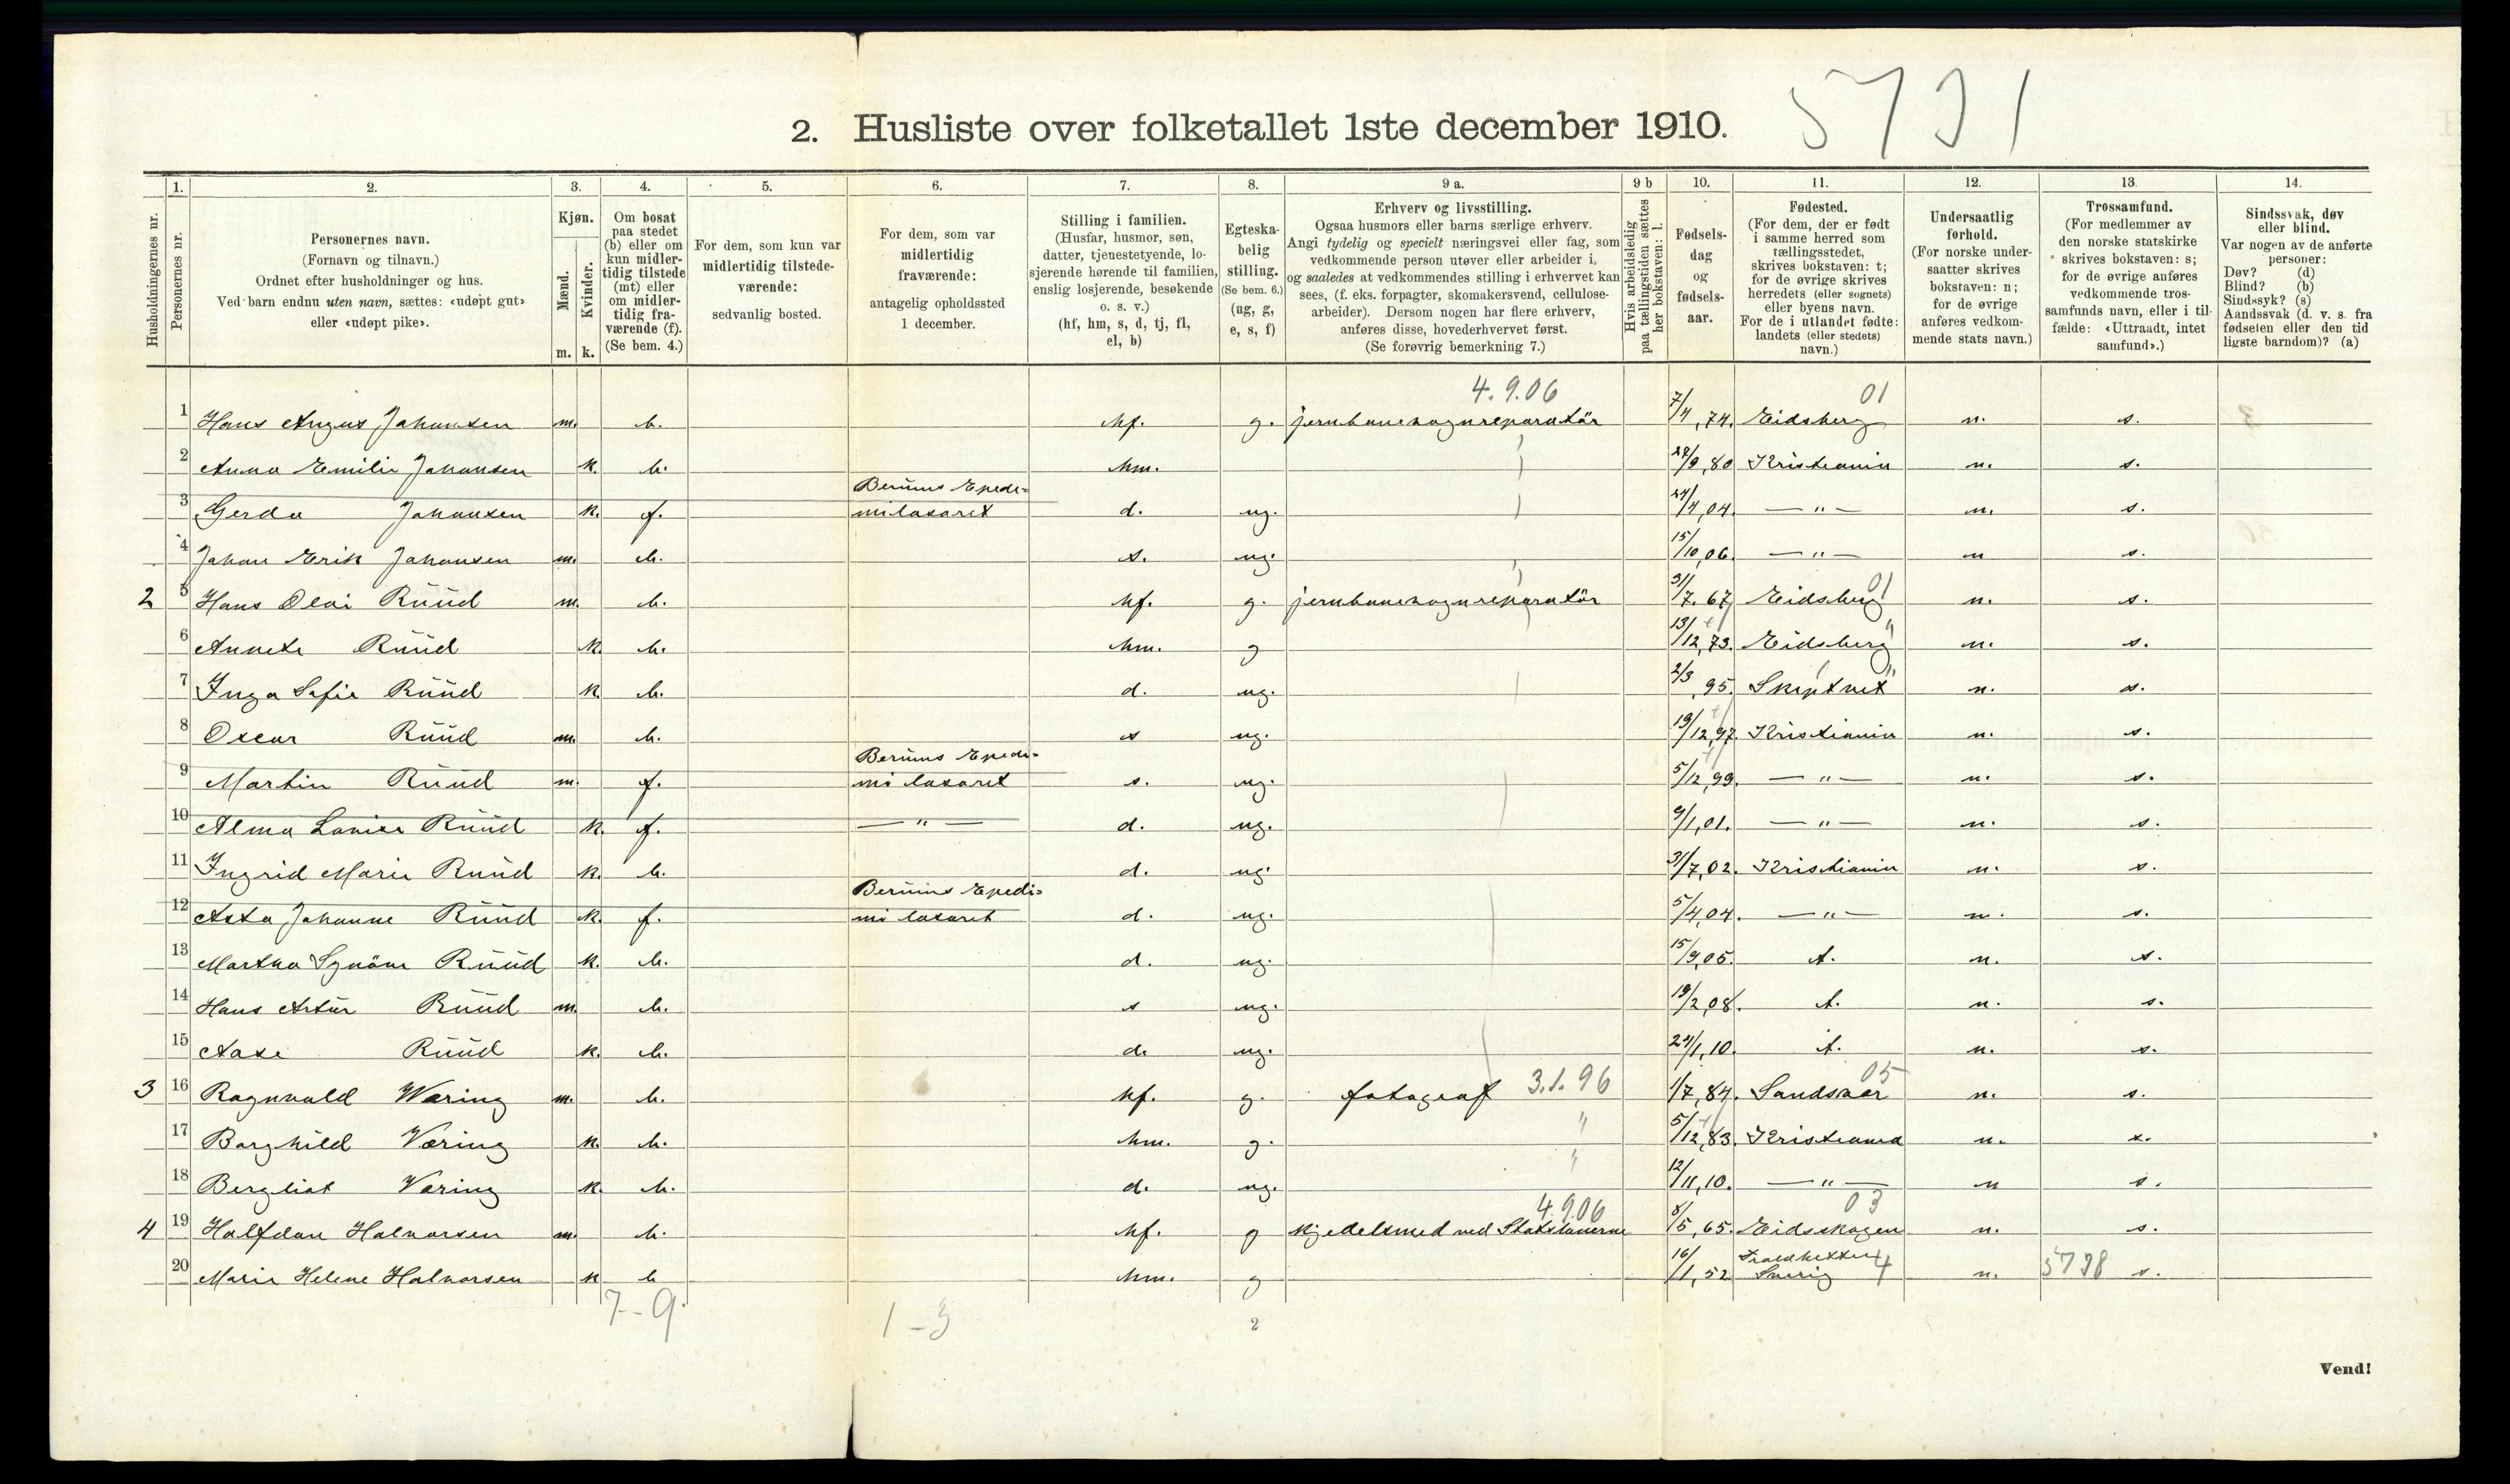 5731
2. Husliste over folketallet 1ste december 1910.
Husholdningernes nr.
1. Personernes nr.
2. Personernes navn.
(Fornavn og tilnavn.)
Ordnet efter husholdninger og hus.
Ved barn endnu uten navn, sættes: «udøpt gut»
eller «udøpt pike».
3. Kjøn.
Mænd. m.
Kvinder. k.
4. Om bosat
paa stedet
(b) eller om
kun midler-
tidig tilstede
(mt) eller
om midler-
tidig fra-
værende (f).
(Se bem. 4.)
5. For dem, som kun var
midlertidig tilstede-
værende:
sedvanlig bosted.
6. For dem, som var
midlertidig
fraværende:
antagelig opholdssted
1 december.
7. Stilling i familien.
(Husfar, husmor, søn,
datter, tjenestetyende, lo-
sjerende hørende til familien,
enslig losjerende, besøkende
o. s. v.)
(hf, hm, s, d, tj, fl,
el, b)
8. Egteska-
belig
stilling.
(Se bem. 6.)
(ug, g,
e, s, f)
9 a. Erhverv og livsstilling.
Ogsaa husmors eller barns særlige erhverv.
Angi tydelig og specielt næringsvei eller fag, som
vedkommende person utøver eller arbeider i,
og saaledes at vedkommendes stilling i erhvervet kan
sees, (f. eks. forpagter, skomakersvend, cellulose-
arbeider). Dersom nogen har flere erhverv,
anføres disse, hovederhvervet først.
(Se forøvrig bemerkning 7.)
9 b Hvis arbeidsledig
paa tællingstiden sættes
her bokstaven: l.
10. Fødsels-
dag
og
fødsels-
aar.
11. Fødested.
(For dem, der er født
i samme herred som
tællingsstedet,
skrives bokstaven: t;
for de øvrige skrives
herredets (eller sognets)
eller byens navn.
For de i utlandet fødte:
landets (eller stedets)
navn.)
12. Undersaatlig
forhold.
(For norske under-
saatter skrives
bokstaven: n;
for de øvrige
anføres vedkom-
mende stats navn.)
13. Trossamfund.
(For medlemmer av
den norske statskirke
skrives bokstaven: s;
for de øvrige anføres
vedkommende tros-
samfunds navn, eller i til-
fælde: «Uttraadt, intet
samfund».)
14. Sindssvak, døv
eller blind.
Var nogen av de anførte
personer:
Døv? (d)
Blind? (b)
Sindssyk? (s)
Aandssvak (d. v. s. fra
fødselen eller den tid
ligste barndom)? (a)
4.9.06 01
1 Hans Johansen m. b. hf. g. jernbanevognreparatör 7/4,74. Eidsberg n. s.
2 Anna Emilie Johansen k. b. hm. 27/9,80 Kristiania n. s.
3 Gerda Johansen k. f. Berums Epede=
milasaret d. ug. 24/4,04. — " — n. s.
4 Johan Erik Johansen m. b. s. ug. 15/10,06. — " — n s.
2 5 Hans Olai Ruud m. b. hf. g. jernbanevognreparatör 31/7.67 Eidsberg 01 n. s.
6 Annete Ruud k. b. hm. g 13/12,73. Eidsberg " n. s.
7 Inga Sofie Ruud k b. d. ug. 2/3,95. Skiptvet n. s.
8 Oscar Ruud m. b. s ug. 19/12,97. Kristiania n. s.
9 Martin Ruud m. f. Berums Epedi=
mi lasaret s. ug. 5/12,99. — " — n. s.
10 Alma Lovise Ruud k. f. — " — d. ug. 9/1,01. — " — n. s.
11 Ingrid Marie Ruud k. b. d. ug. 31/7,02. Kristiania n. s.
12 Asta Johanne Ruud k. f. Berums Epedi=
mi lasaret d. ug. 5/4,04. — " — n. s.
13 Martha Ruud k. b. d. ug. 15/9,05. t. n. s.
14 Hans Artur Ruud m. b. s ug. 19/2,08. t. n. s.
15 Aase Ruud k. b. d. ug. 24/1,10. t. n. s.
3 16 Ragnvald Wæring m. b. hf. g. fotograf 3.1.96 1/7,84. Sandsvær 05 n. s.
17 Borghild Væring k. b. hm. g. " 5/12,83. Kristiania n. s.
18 Bergliot Væring k. b. d. ug. " 12/11,10. — " — n s.
4 19 Halfdan Halvorsen m. b. hf. g kjedelsmed ved Statsbanerne 4.9.06 8/5,65. Eidskogen 03 n. s.
20 Marie Helene Halvorsen k b hm. g 16/1,52 Troldhetten
Sverig n. 5798 s.
7-9 1-3 2
Vend!